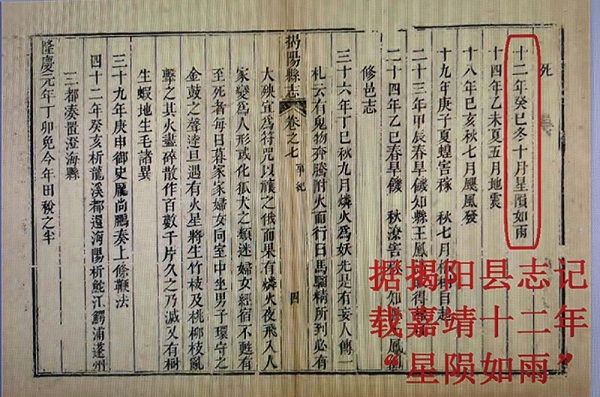 死
十二年癸巳冬十月星隕如雨
十四年乙未夏五月地震
十八年己亥秋七月颶風發
十九年庚子夏蝗害稼 秋七月
二十三年甲辰春旱饑知縣王鳳
二十四年乙巳春旱饑 秋潦害 知縣 鳳
修邑志
三十六年丁巳秋九月燐火為妖先是有妄人傳一
札云有鬼物奔騰附火而行曰馬騮精所到必有
揭陽縣志 卷之七 事紀 四
大殃宜為符咒以禳之俄而果有燐火夜飛入人
家變為人形或化狐犬之類迷婦女經宿不甦有
至死者每日暮家家婦女向室中坐男子環守之
金鼓之聲達旦遇有火星將生竹枝及桃柳枝亂
擊之其火星碎散作百數千片久之乃滅又有樹
生蝦地生毛諸異
三十九年庚申御史龐尚鵬奏上條鞭法
四十二年癸亥析龍溪都還海陽析鮀江鱷浦蓬州
三都湊置澄海縣
隆慶元年丁卯免今年田稅之半
据揭阳县志记
载嘉靖十二年
“星陨如雨”